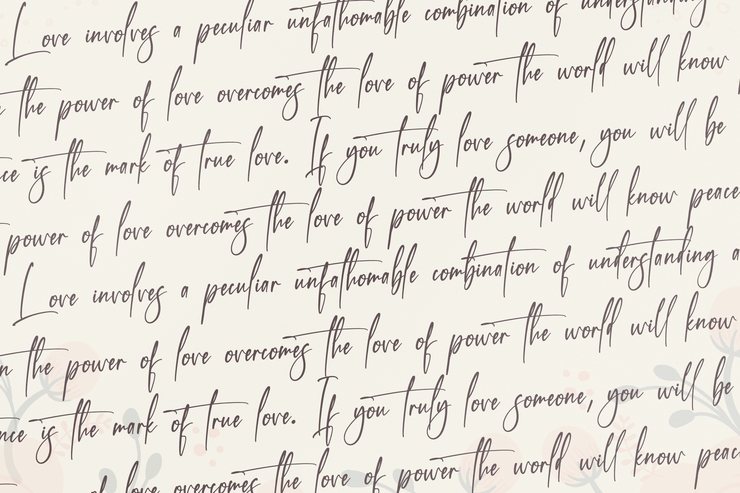 Love involves a peculiar unfathomable combination of understanding
the power of love overcomes the love of power the world will know
is the mark of true love. If you truly love someone, you will be
power of love overcomes the love of power the world will know peace
Love involves a peculiar unfathomable combination of understanding a
the power of love overcomes the love of power the world will know
is the mark of true love. If you truly love someone, you will be
of love overcomes the love of power the world will know peac